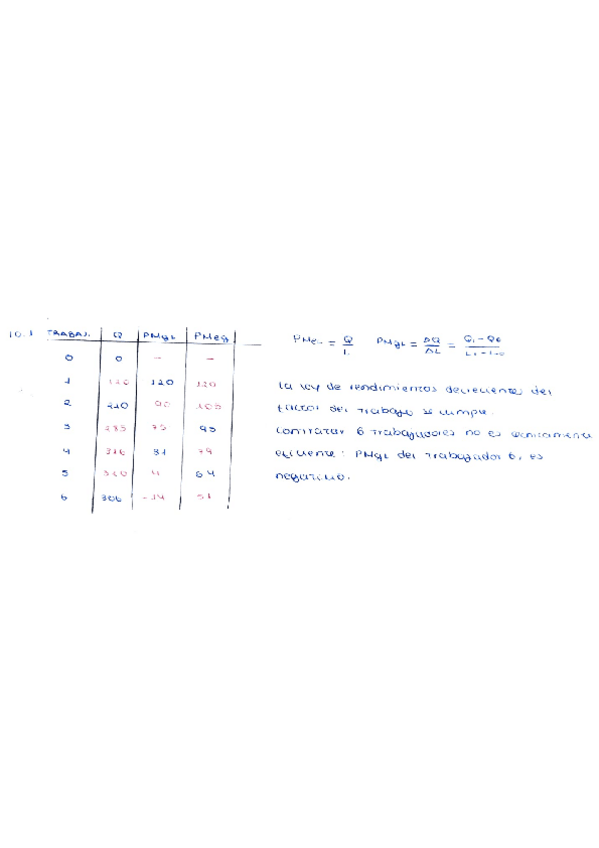 10.1 TRABAJ. Q PMgL PMeg
0 0 - -
1 120 120 120
2 210 90 105
3 285 75 95
4 316 31 79
5 320 4 64
6 306 -14 51
PMeL = Q/L PMgL = ΔQ/ΔL = Q1-Q0/L1-L0
La ley de rendimientos decrecientes del
factor del trabajo se cumple.
Contratar 6 trabajadores no es técnicamente
eficiente: PMgL del trabajador 6, es
negativo.